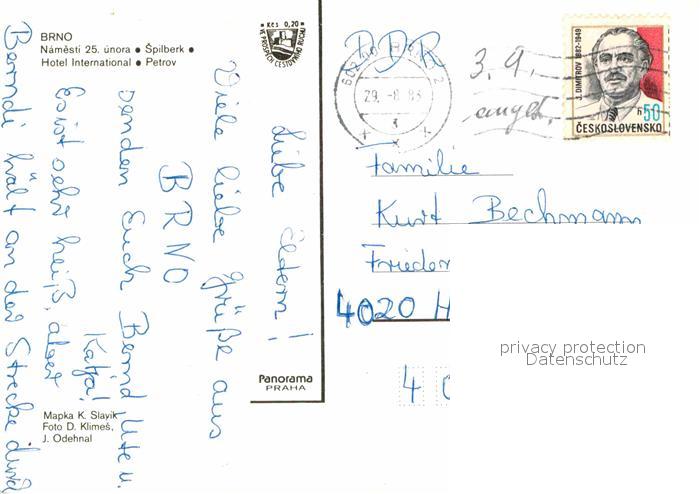 BRNO
Náměstí 25. února • Špilberk •
Hotel International • Petrov
Kčs 0,20
VE PROSPĚCH CESTOVNÍHO RUCHU
Liebe Eltern!
Viele liebe Grüße aus
BRNO
senden Euch Bernd, Ute u.
Katja!
Es ist sehr heiß, aber
Berndi hält an der Strecke durch
Mapka K. Slavík
Foto D. Klimeš,
J. Odehnal
Panorama
PRAHA
DDR
602 00 BRNO 2
29. -8. 83
3. 9.
J. DIMITROV 1882-1949
h 50
ČESKOSLOVENSKO
Familie
Kurt Bechmann
Frieden
4020 H
4 0
privacy protection
Datenschutz